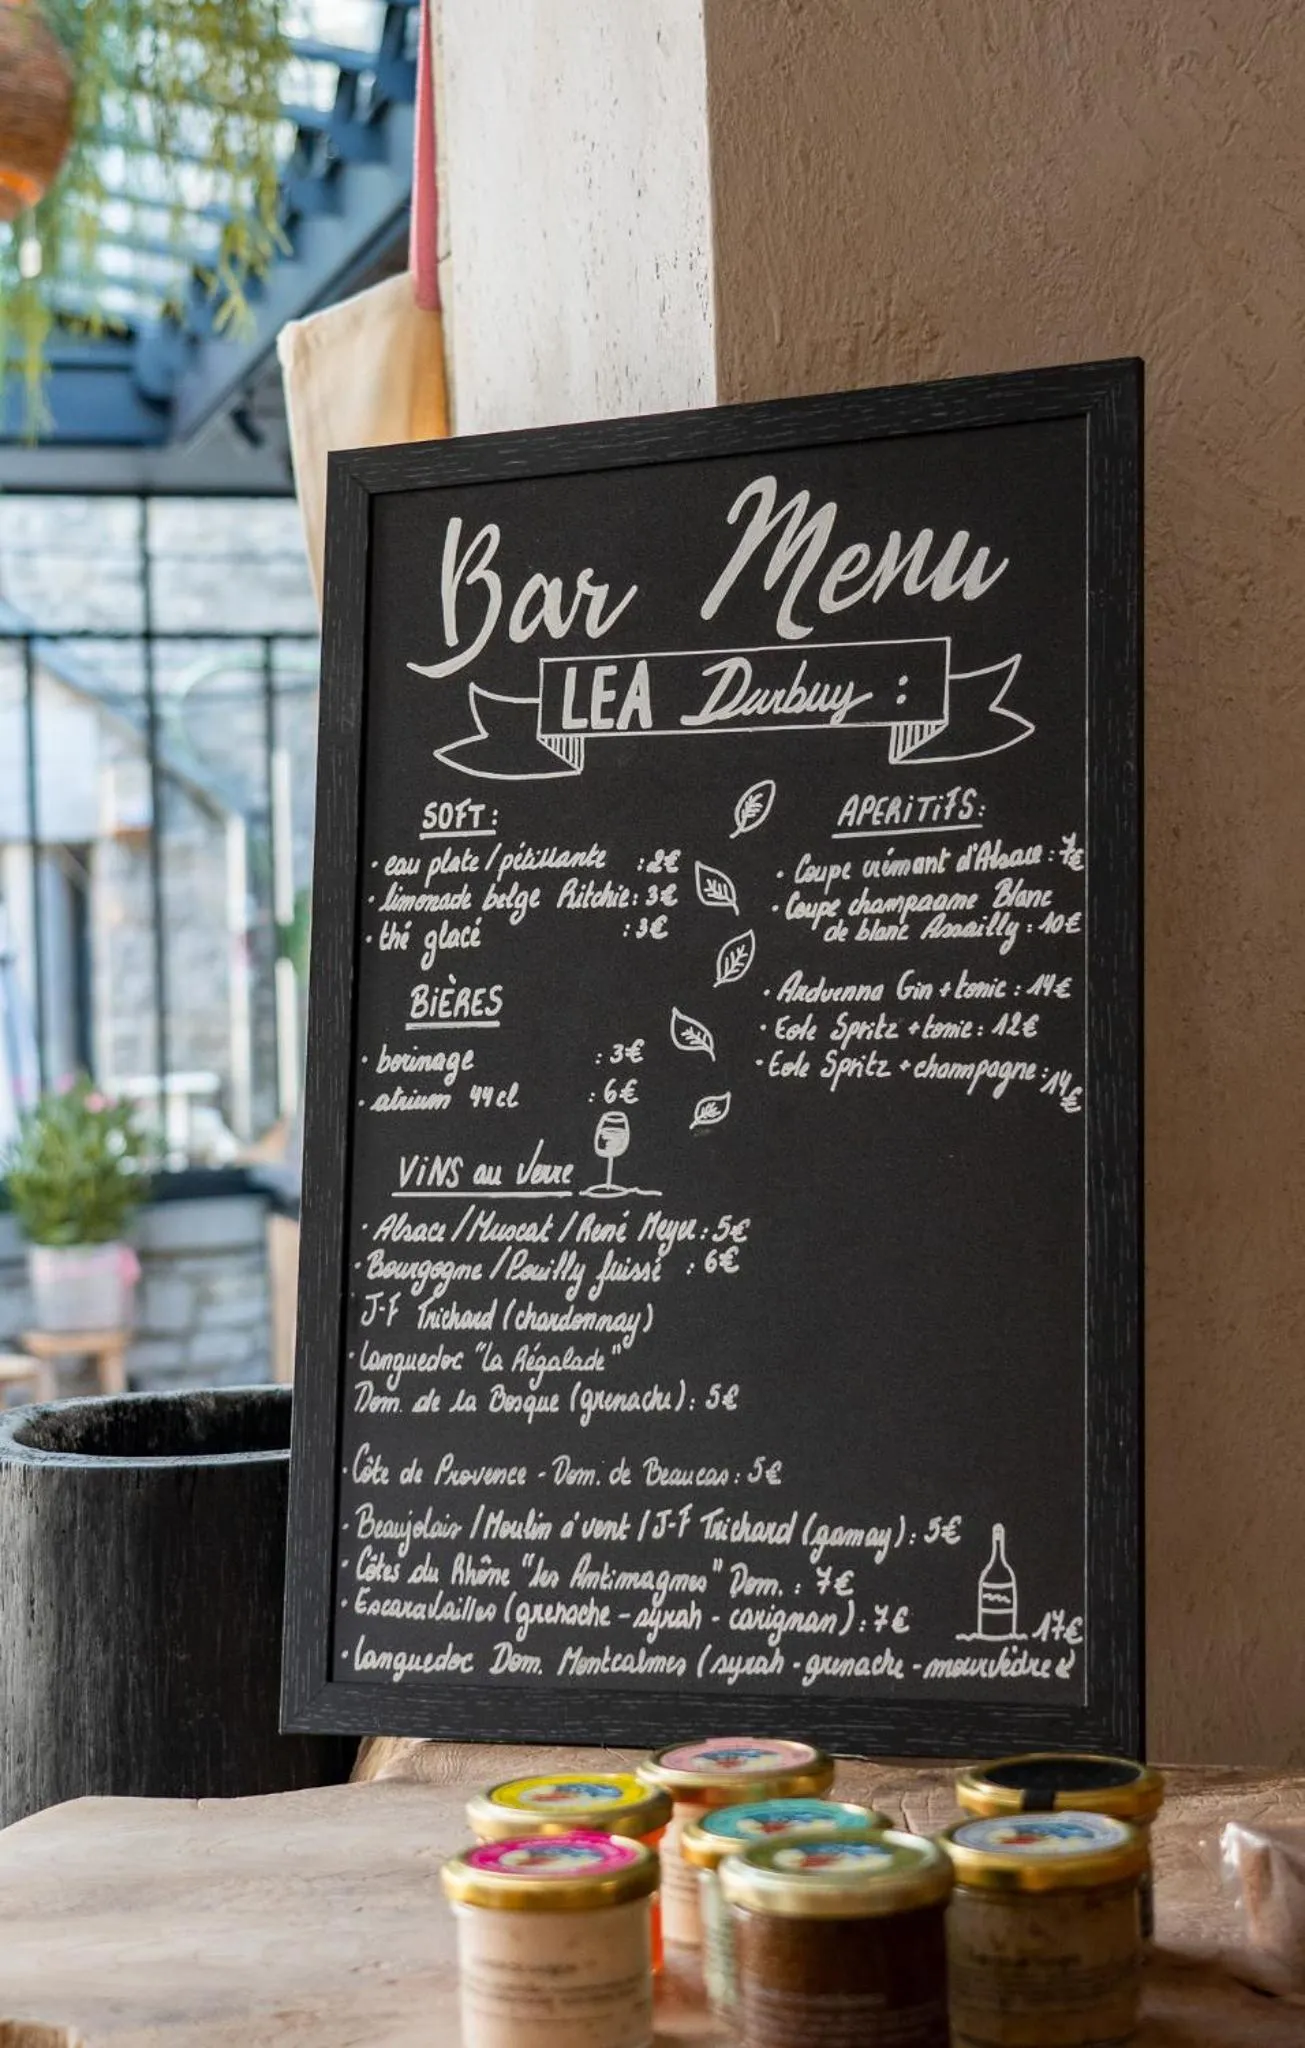 Bar Menu
LEA Durbuy :
SOFT :
• eau plate / pétillante : 2€
• limonade belge Ritchie : 3€
• thé glacé : 3€
BiÈRES
• borinage : 3€
• atrium 44cl : 6€
APERiTiFS :
• Coupe crémant d'Alsace : 7€
• Coupe champagne Blanc
de blanc Assailly : 10€
• Arduenna Gin + tonic : 14€
• Eole Spritz + tonic : 12€
• Eole Spritz + champagne : 14€
ViNS au Verre
• Alsace / Muscat / René Meyer : 5€
• Bourgogne / Pouilly fuissé : 6€
J-F Trichard (chardonnay)
• Languedoc "la Régalade"
Dom. de la Bosque (grenache) : 5€
• Côte de Provence - Dom. de Beaucas : 5€
• Beaujolais / Moulin à vent / J-F Trichard (gamay) : 5€
• Côtes du Rhône "les Antimagnes" Dom. : 7€
• Escaravailles (grenache - syrah - carignan) : 7€
17€
• Languedoc Dom. Montcalmes (syrah - grenache - mourvèdre